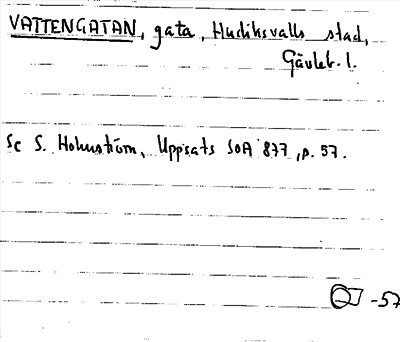 VATTENGATAN, gata, Hudiksvalls stad,
Gävleb. l.
Se S. Holmström, Uppsats SOA 877, p. 57.
-57